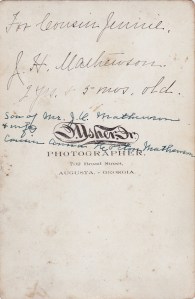 For Cousin Jennie.
J. H. Mathewson
2 yrs. 5 mos. old.
Son of Mr. J. C. Mathewson
& wife
Cousin Mathewson
Usher Jr.
PHOTOGRAPHER,
Street,
AUGUSTA, - GEORGIA.